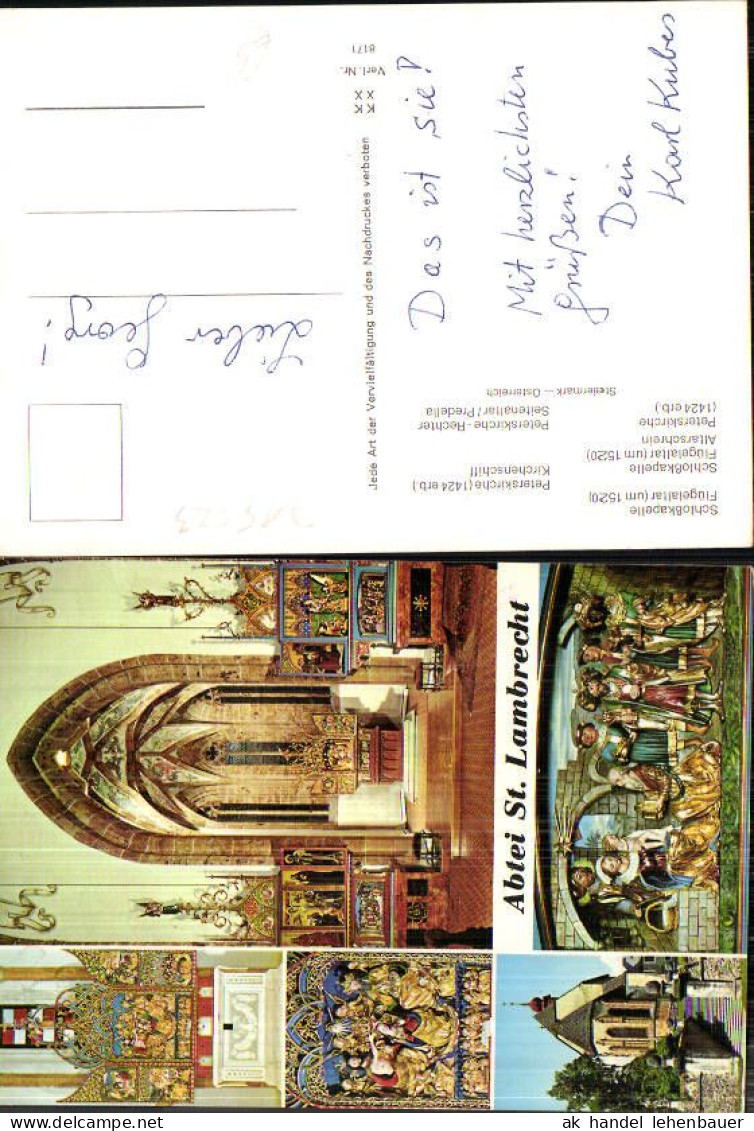 Schloßkapelle
Flügelaltar (um 1520)
Schloßkapelle
Flügelaltar (um 1520)
Altarschrein
Peterskirche
(1424 erb.)
Peterskirche (1424 erb.)
Kirchenschiff
Peterskirche - Rechter
Seitenaltar / Predella
Steiermark — Österreich
Lieber Georg!
Das ist sie!
Mit herzlichsten
Grüßen!
Dein
Karl Kubes
Jede Art der Vervielfältigung und des Nachdruckes verboten
KK
XX
Verl.-Nr.
8171
Abtei St. Lambrecht
ak handel lehenbauer